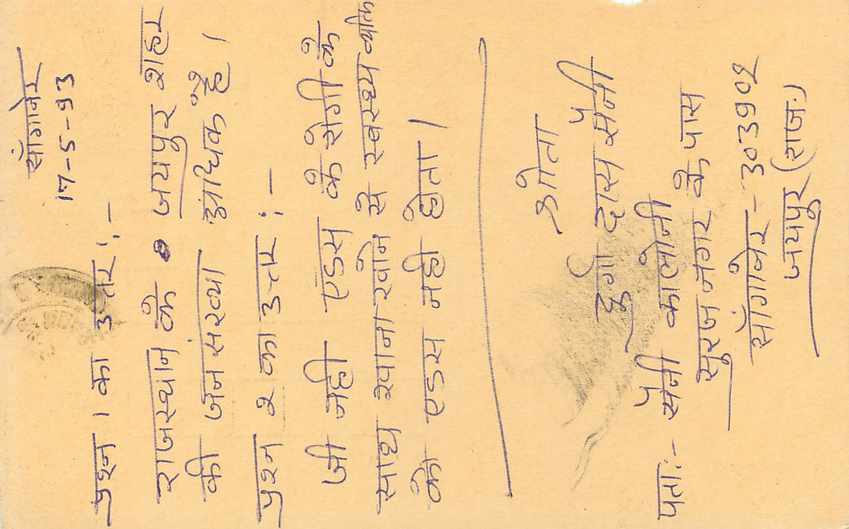 साँगानेर
17-5-93
प्रश्न 1 का उत्तर :-
राजस्थान के जयपुर शहर
की जनसंख्या अधिक है।
प्रश्न २ का उत्तर :-
जी नही एडस के रोगी के
साथ खाना खाने से स्वस्थ्य व्यक्ति
को एडस नही होता।
श्रोता
दुर्गा दास सैनी
पता:- सैनी कालोनी
सुरज नगर के पास
साँगानेर - 303902
जयपुर (राज.)